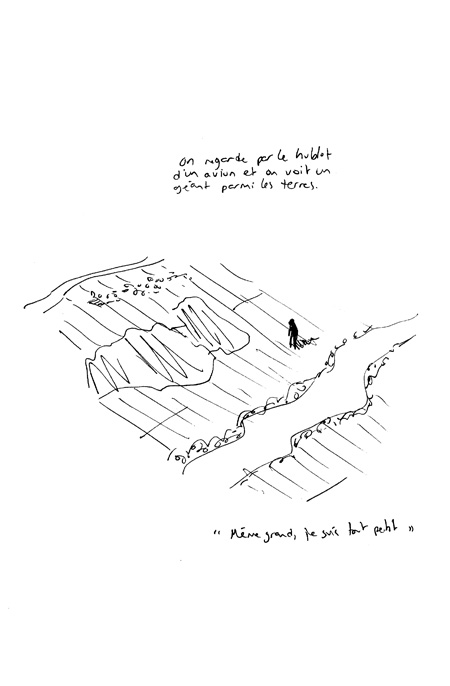 On regarde par le hublot
d'un avion et on voit un
géant parmi les terres.
“ Même grand, je suis tout petit ”